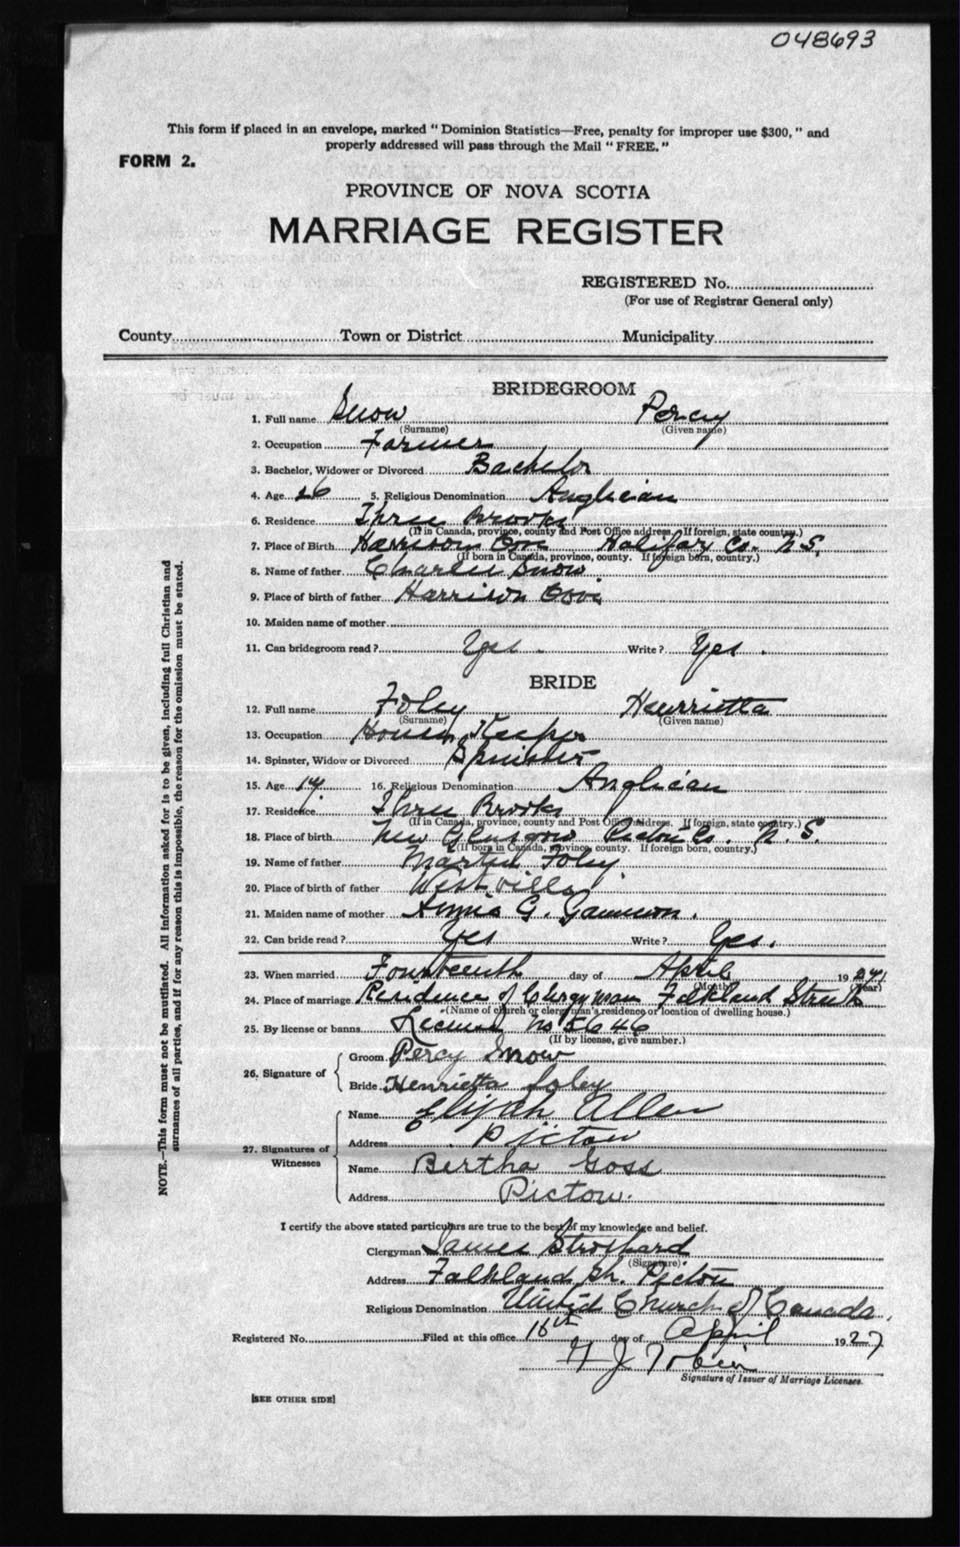 048693
This form if placed in an envelope, marked " Dominion Statistics—Free, penalty for improper use $300, " and
properly addressed will pass through the Mail " FREE. "
FORM 2.
PROVINCE OF NOVA SCOTIA
MARRIAGE REGISTER
REGISTERED No.
(For use of Registrar General only)
County Town or District Municipality
BRIDEGROOM
1. Full name Snow Percy
(Surname) (Given name)
2. Occupation Farmer
3. Bachelor, Widower or Divorced Bachelor
4. Age 26 5. Religious Denomination Anglican
6. Residence Three Brooks
(If in Canada, province, county and Post Office address. If foreign, state country.)
7. Place of Birth Harrison Cove Halifax Co. N.S.
(If born in Canada, province, county. If foreign born, country.)
8. Name of father Charlie Snow.
9. Place of birth of father Harrison Cove
10. Maiden name of mother
11. Can bridegroom read? Yes. Write? Yes.
BRIDE
12. Full name Foley Henrietta
(Surname) (Given name)
13. Occupation House Keeper
14. Spinster, Widow or Divorced Spinster
15. Age 16. Religious Denomination Anglican
17. Residence Three Brooks
(If in Canada, province, county and Post Office address. If foreign, state country.)
18. Place of birth New Glasgow Pictou Co. N.S.
(If born in Canada, province, county. If foreign born, country.)
19. Name of father Martin Foley
20. Place of birth of father Westville
21. Maiden name of mother Annie G. Gammon.
22. Can bride read? Yes Write? Yes.
23. When married Fourteenth day of April 1927
(Month) (Year)
24. Place of marriage Residence of Clergyman Falkland Street
(Name of church or clergyman's residence or location of dwelling house.)
25. By license or banns License No 5646
(If by license, give number.)
26. Signature of
Groom Percy Snow
Bride Henrietta foley
27. Signatures of Witnesses
Name Elijah Allen
Address Pictou
Name Bertha Goss
Address Pictou.
I certify the above stated particulars are true to the best of my knowledge and belief.
Clergyman James
(Signature)
Address Falkland St. Pictou
Religious Denomination United Church of Canada.
Registered No. Filed at this office 16th day of April 1927
J Tobin
Signature of Issuer of Marriage Licenses.
[SEE OTHER SIDE]
NOTE.—This form must not be mutilated. All information asked for is to be given, including full Christian and
surnames of all parties, and if for any reason this is impossible, the reason for the omission must be stated.